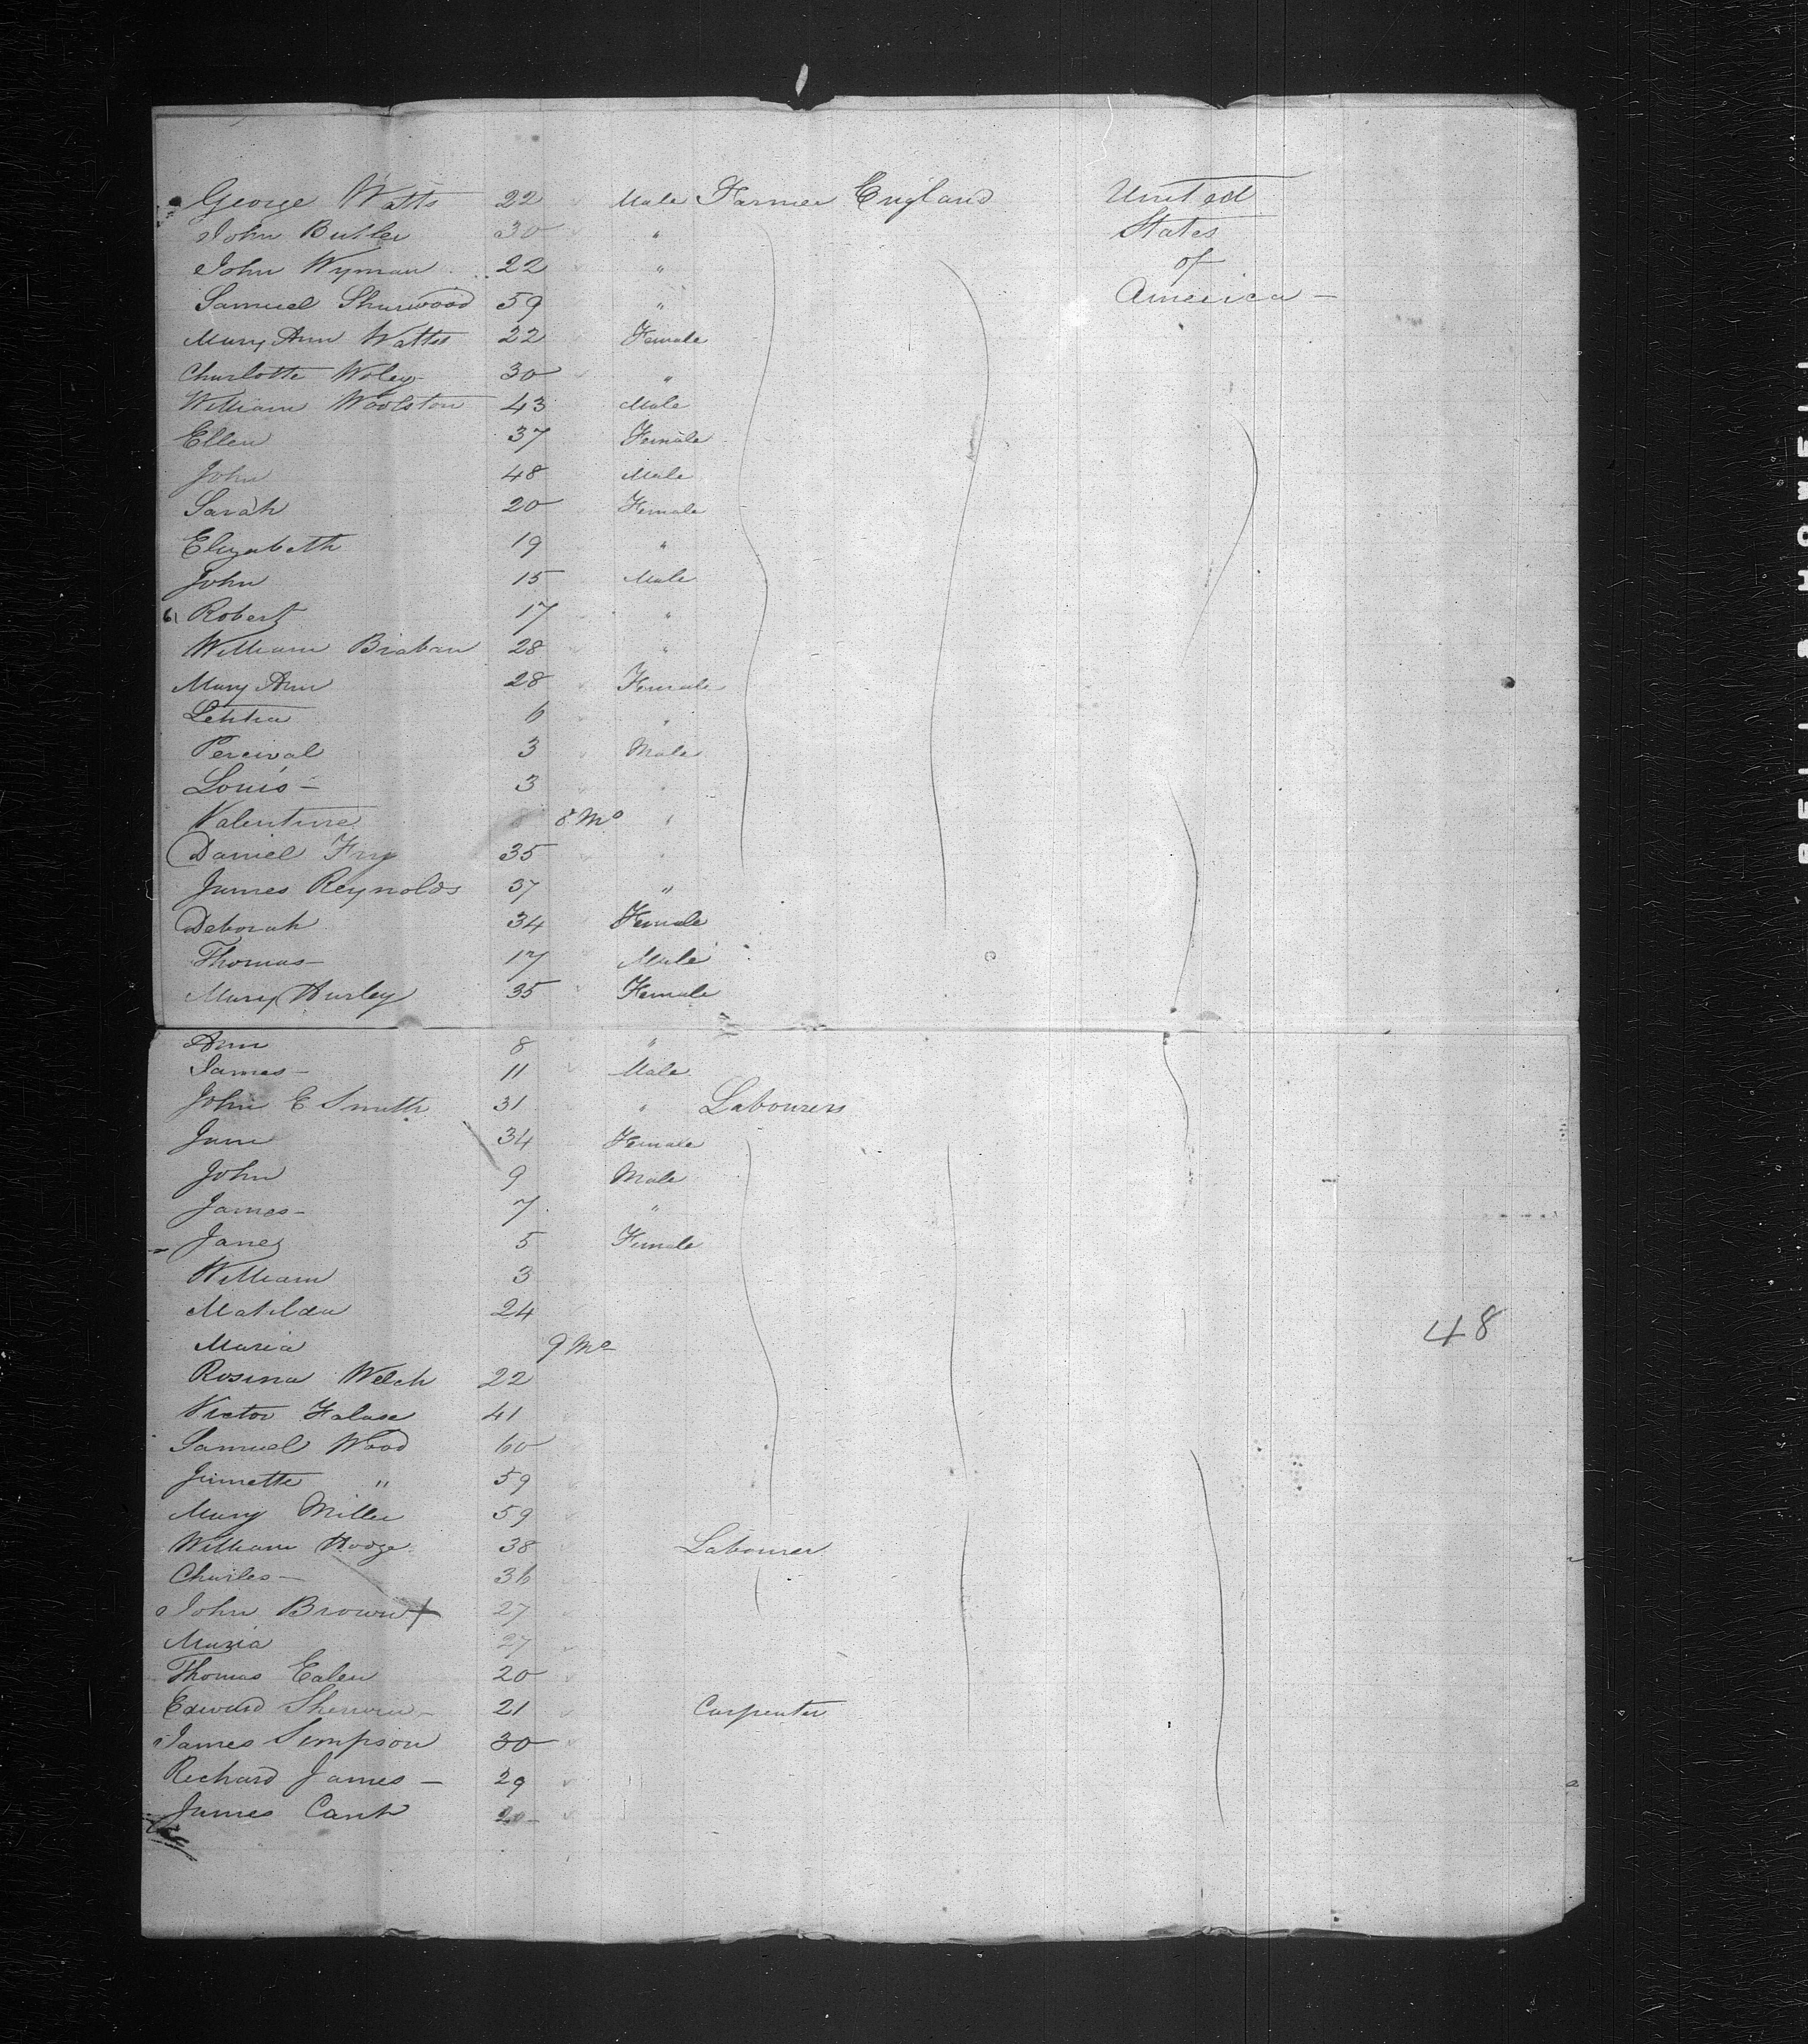 George Watts 22 Male Farmer England United
John Butler 30 " States
John Wyman 22 " of
Samuel Shurwood 59 " America —
Mary Ann Watts 22 Female
Charlotte Woley 30 "
William Woolston 43 Male
Ellen 37 Female
John 48 Male
Sarah 20 Female
Elizabeth 19 "
John 15 Male
Robert 17 "
William Braban 28 "
Mary Ann 28 Female
Letitia 6 "
Percival 3 Male
Louis — 3 "
Valentine 8 Mo "
Daniel Fry 35 "
James Reynolds 37 "
Deborah 34 Female
Thomas — 17 Male
Mary Hurley 35 Female
Ann 8 "
James — 11 Male
John E Smith 31 " Labourers
Jane 34 Female
John 9 Male
James — 7 "
Jane 5 Female
William 3
Matilda 24
Maria 9 Mo
Rosina Welch 22
Victor 41
Samuel Wood 60
" 59
Mary Miller 59
William Hodge 38 Labourer
Charles — 36
John Brown 27
Maria 27
Thomas Ealen 20
Edward Sherwin 21 Carpenter
James Simpson 30
Richard James — 29
James Cank 20
48
BELL & HOWELL